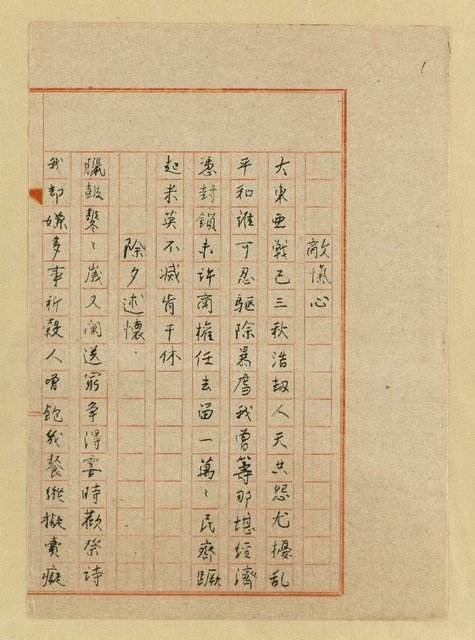 敵愾心
大東亜戰已三秋浩劫人天共怨尤擾乱
平和誰可忍驅除暴虐我曾籌那堪經濟
憑封鎖未許商權任去留一萬〻民齊蹶
起米英不滅肯干休
除夕述懷.
臘鼓鼕〻歲又闌送窮爭得霎時歡祭詩
我却嫌多事祈穀人曾飽我餐縱擬賣癡